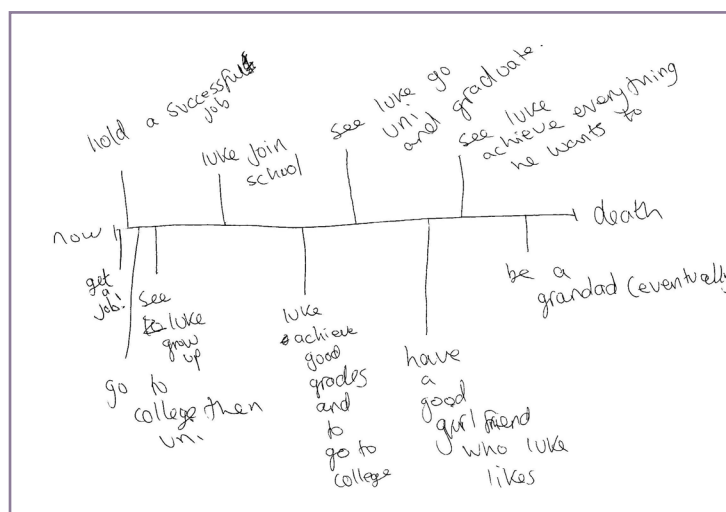 hold a successful
job
luke join
school
see luke go
uni
and graduate.
see luke
achieve everything
he wants to
now
death
get
a
job!
see
luke
grow
up
go to
college then
uni
luke
achieve
good
grades
and
to
go to
college
have
a
good
girlfriend
who luke
likes
be a
grandad (eventually)